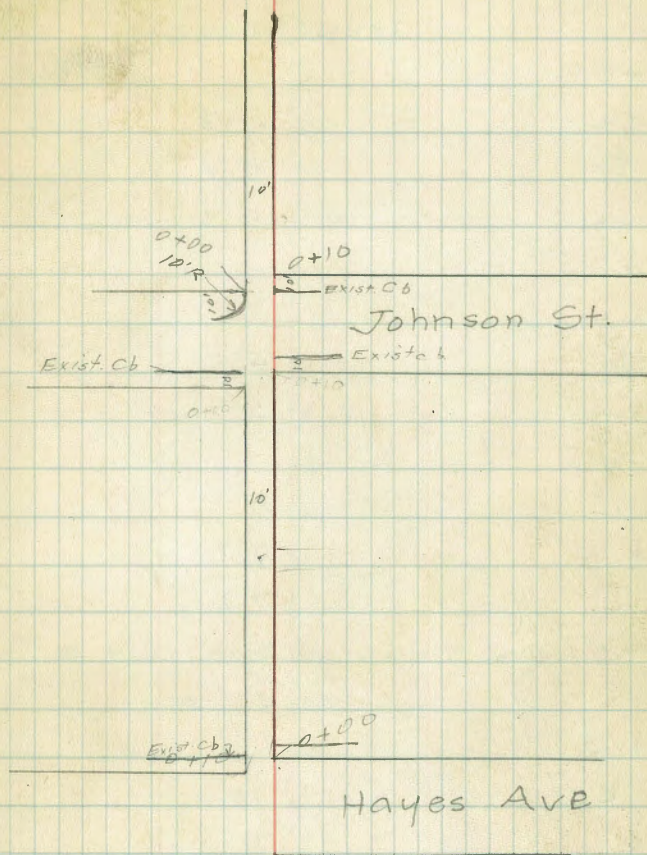 10'
0+00
10'R
10'
0+10
10'
Exist. Cb
Johnson St.
Exist cb
Exist. Cb
0+10
0+10
10'
0+00
Exist. Cb
0+10
Hayes Ave